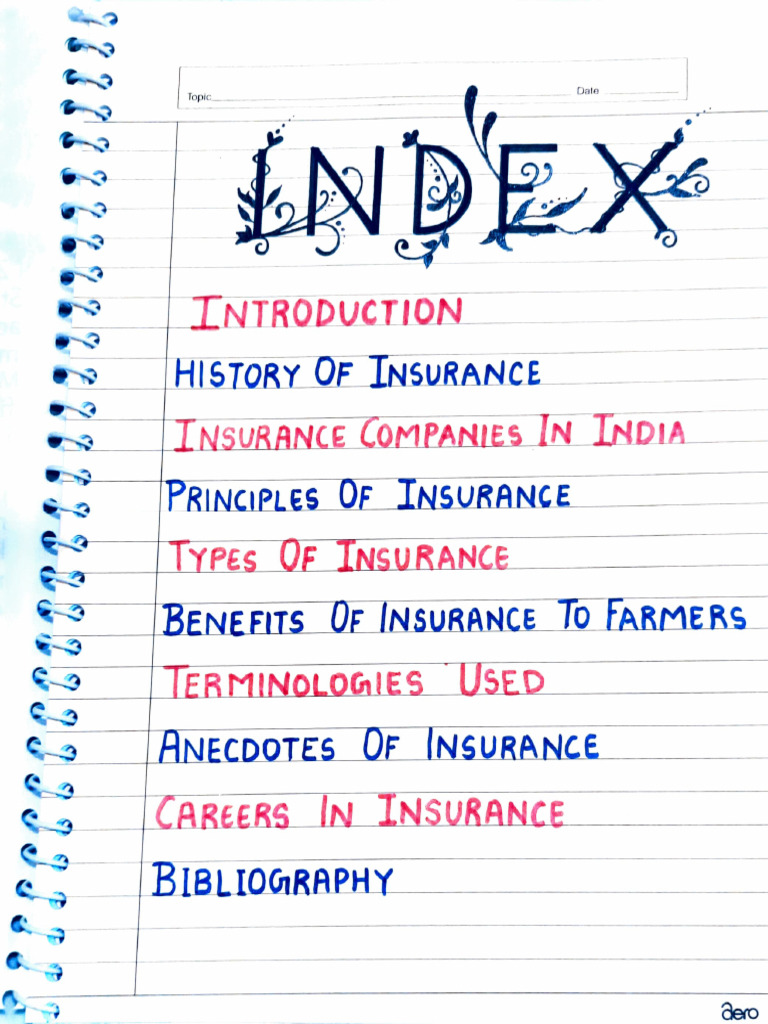 Topic Date
INDEX
INTRODUCTION
HISTORY OF INSURANCE
INSURANCE COMPANIES IN INDIA
PRINCIPLES OF INSURANCE
TYPES OF INSURANCE
BENEFITS OF INSURANCE TO FARMERS
TERMINOLOGIES USED
ANECDOTES OF INSURANCE
CAREERS IN INSURANCE
BIBLIOGRAPHY
aero